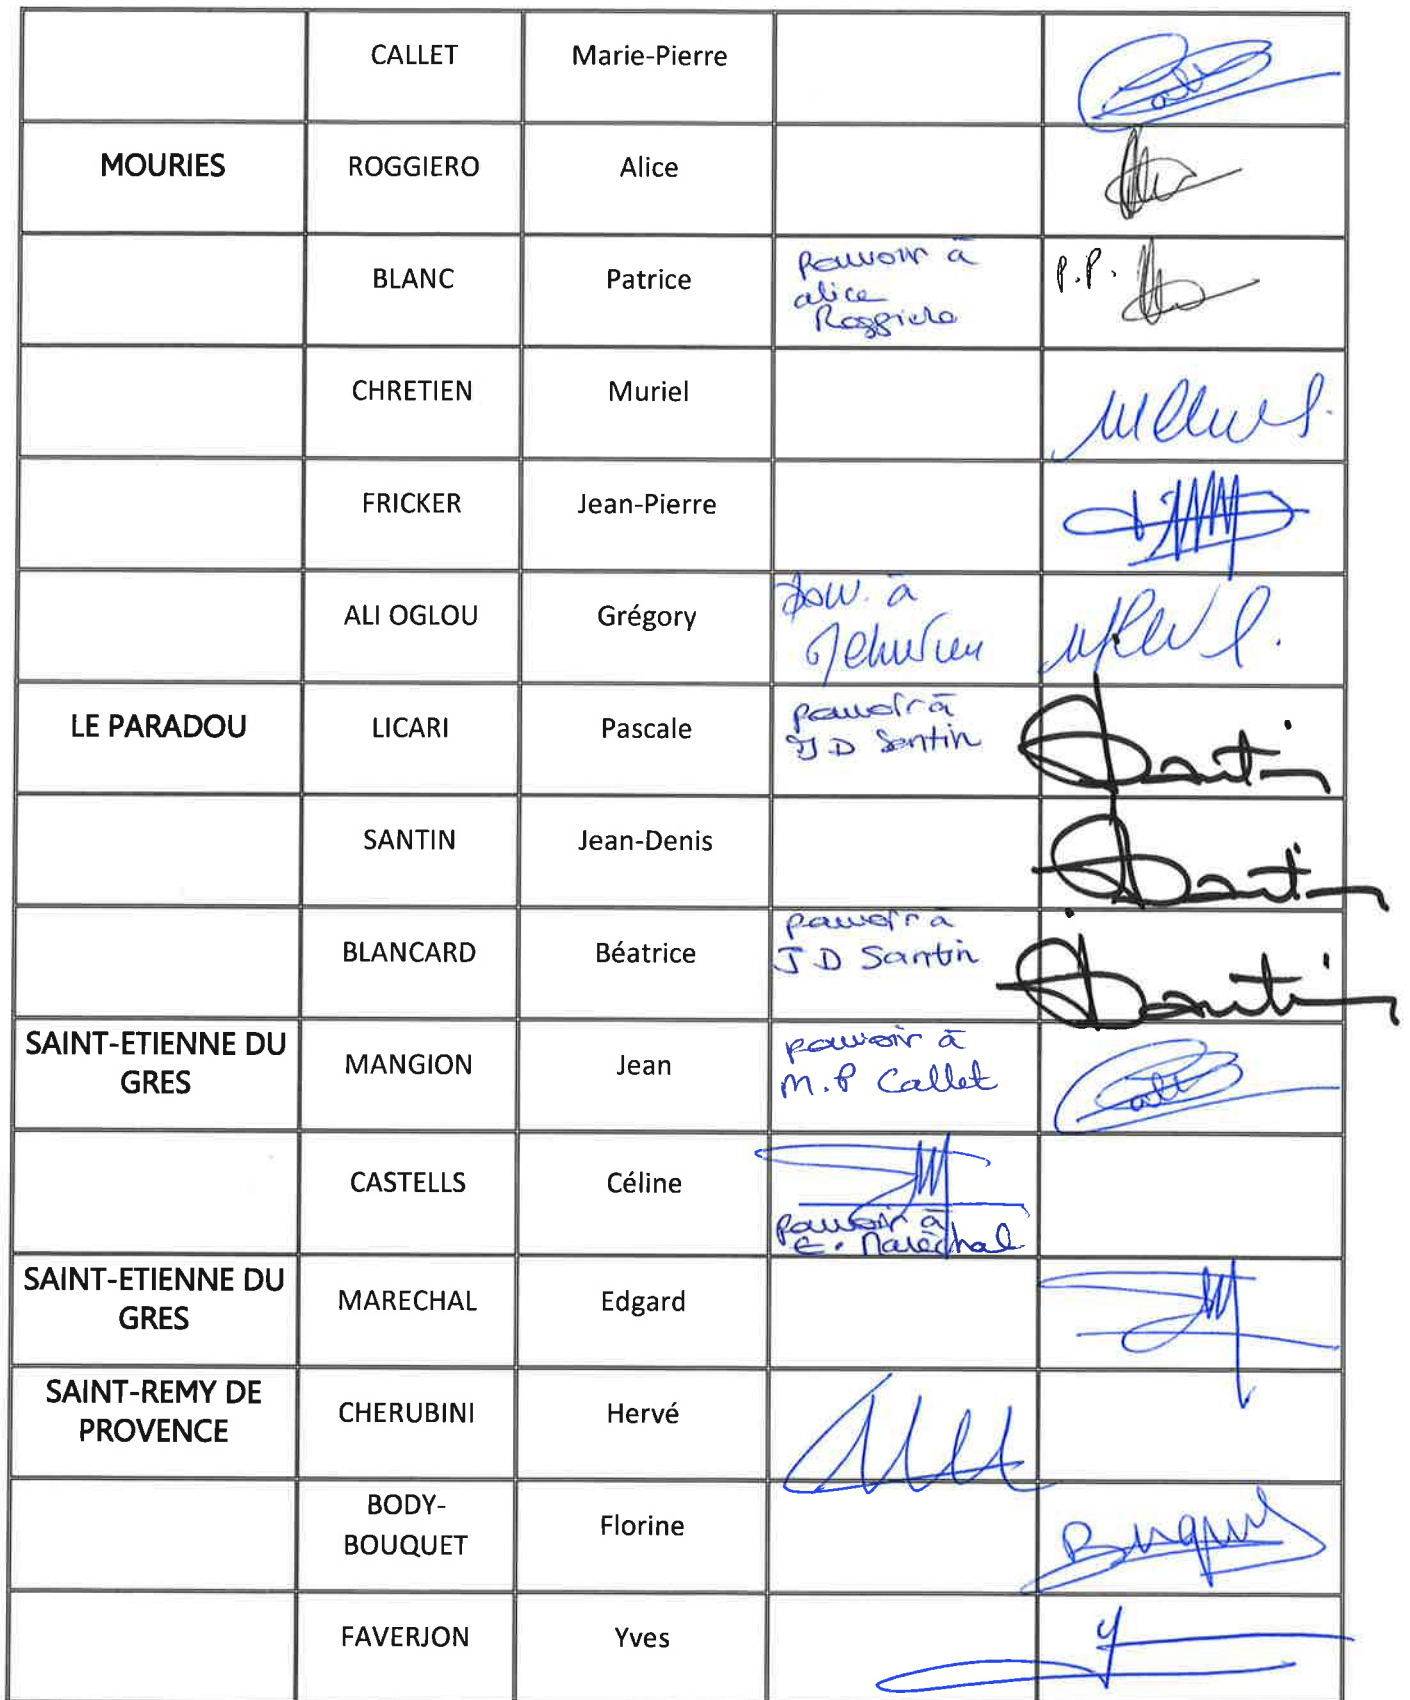 CALLET Marie-Pierre
MOURIES ROGGIERO Alice
BLANC Patrice pouvoir à P.P.
alice
Roggiero
CHRETIEN Muriel
FRICKER Jean-Pierre
ALI OGLOU Grégory pouv. à
LE PARADOU LICARI Pascale pouvoir à
J D Santin Santin
SANTIN Jean-Denis Santin
BLANCARD Béatrice pouvoir à
J D Santin Santin
SAINT-ETIENNE DU
GRES MANGION Jean pouvoir à
M.P Callet
CASTELLS Céline
pouvoir à
E. Maréchal
SAINT-ETIENNE DU
GRES MARECHAL Edgard
SAINT-REMY DE
PROVENCE CHERUBINI Hervé
BODY-
BOUQUET Florine
FAVERJON Yves